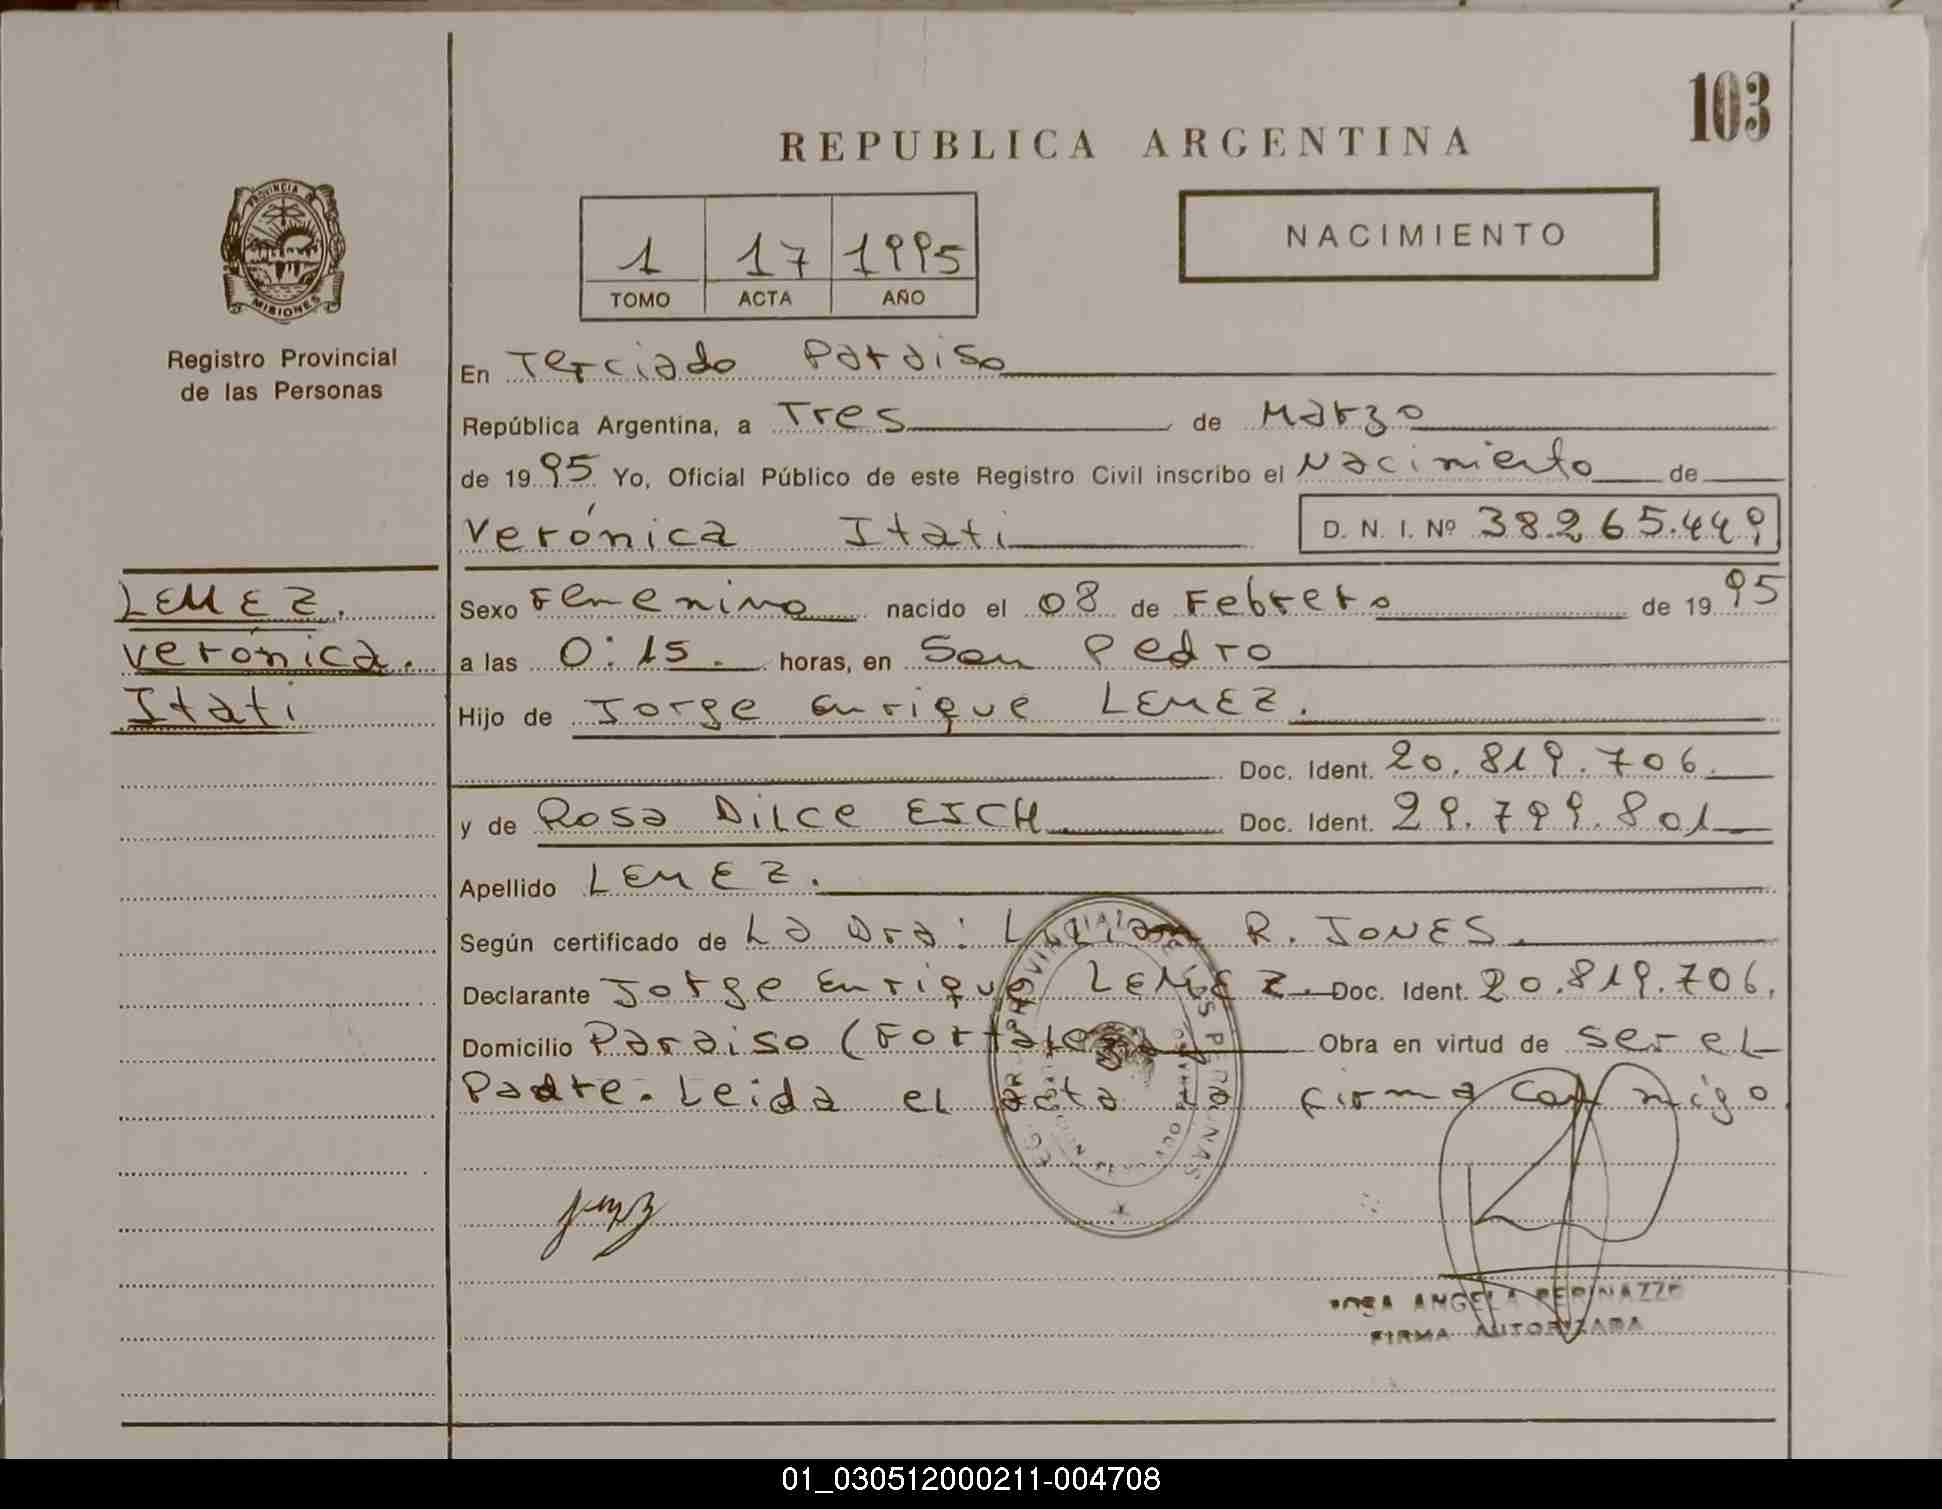 103
REPUBLICA ARGENTINA
NACIMIENTO
1 17 1995
TOMO ACTA AÑO
PROVINCIA DE
MISIONES
Registro Provincial
de las Personas
En Terciado Paraiso
República Argentina, a Tres de Marzo
de 1995 Yo, Oficial Público de este Registro Civil inscribo el Nacimiento de
Verónica Itati D. N. I. Nº 38.265.449
LEMEZ.
Verónica.
Itati
Sexo Femenino nacido el 08 de Febrero de 1995
a las 0:15. horas, en San Pedro
Hijo de Jorge Enrique LEMEZ.
Doc. Ident. 20.819.706.
y de Rosa Dilce ESCH Doc. Ident. 29.799.801
Apellido LEMEZ.
Según certificado de La Dra: Lilian R. JONES.
Declarante Jorge Enrique LEMEZ. Doc. Ident. 20.819.706.
Domicilio Paraiso ( Obra en virtud de ser el
Padre. Leida el acta firma conmigo
ROSA ANGELA PERINAZZO
FIRMA AUTORIZADA
01_030512000211-004708